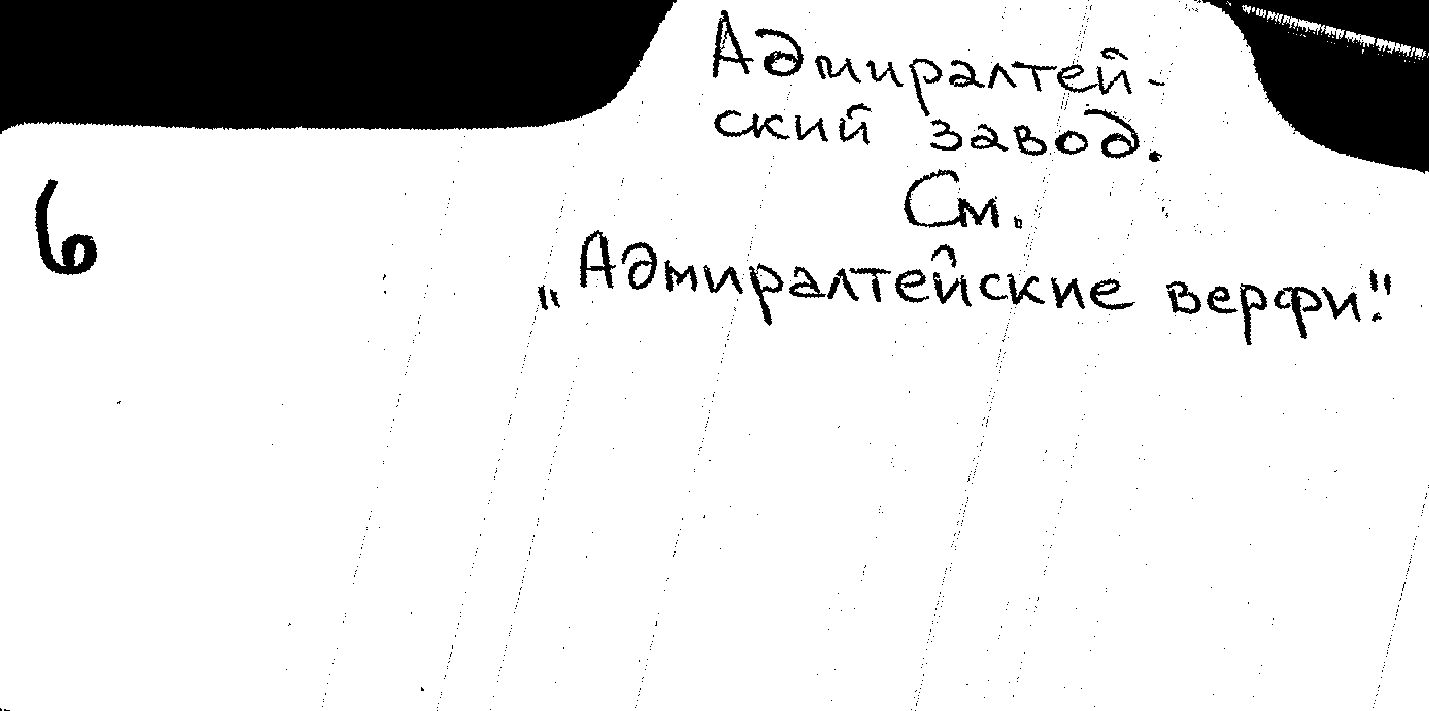 Адмиралтей-
ский завод.
См.
6
„Адмиралтейские верфи."